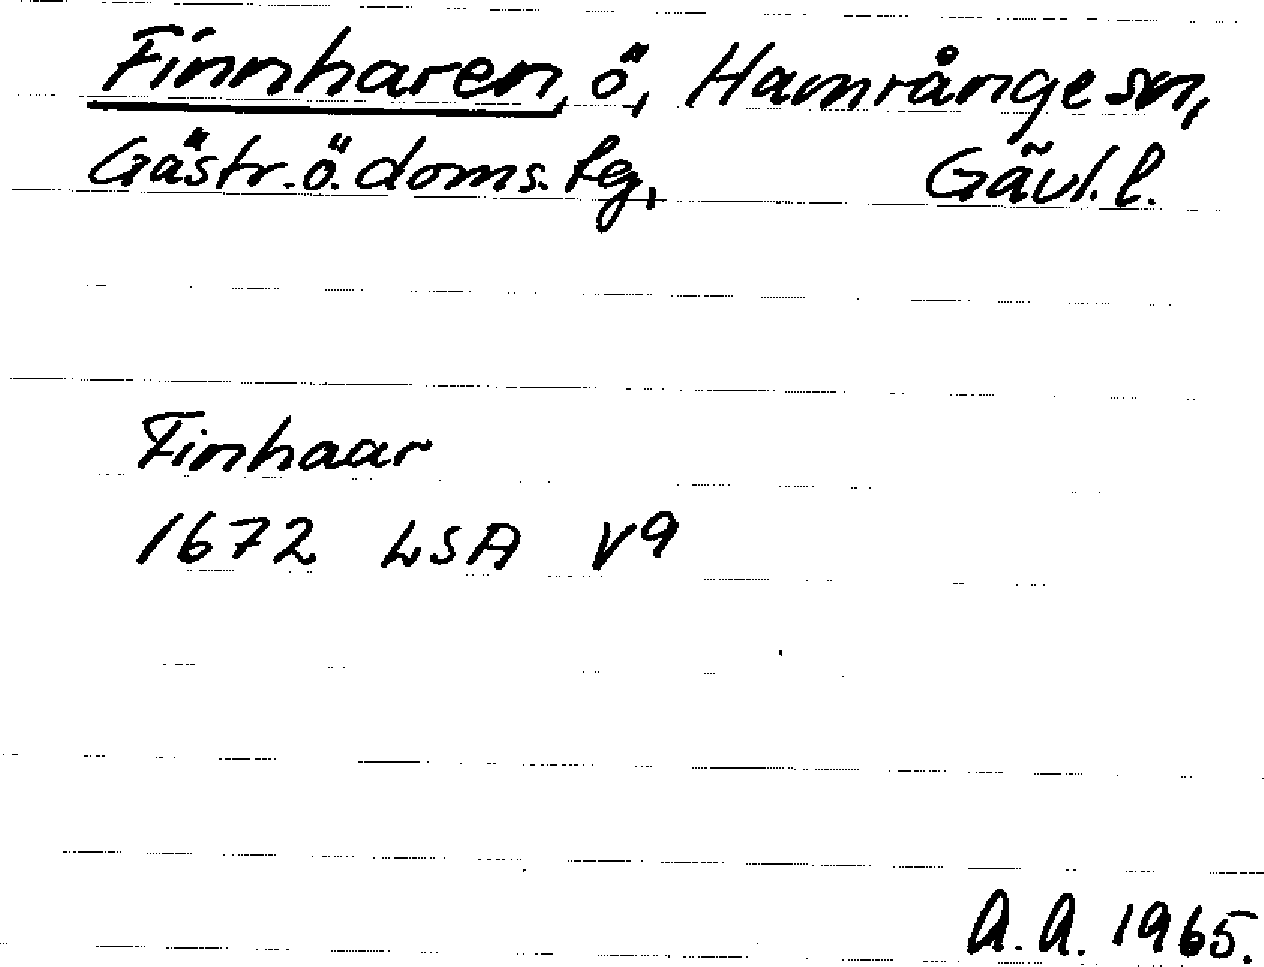 Finnharen, ö, Hamrånge sn,
Gästr. ö. doms. fg, Gävl. l.
Finhaar
1672 LSA V9
A. A. 1965.